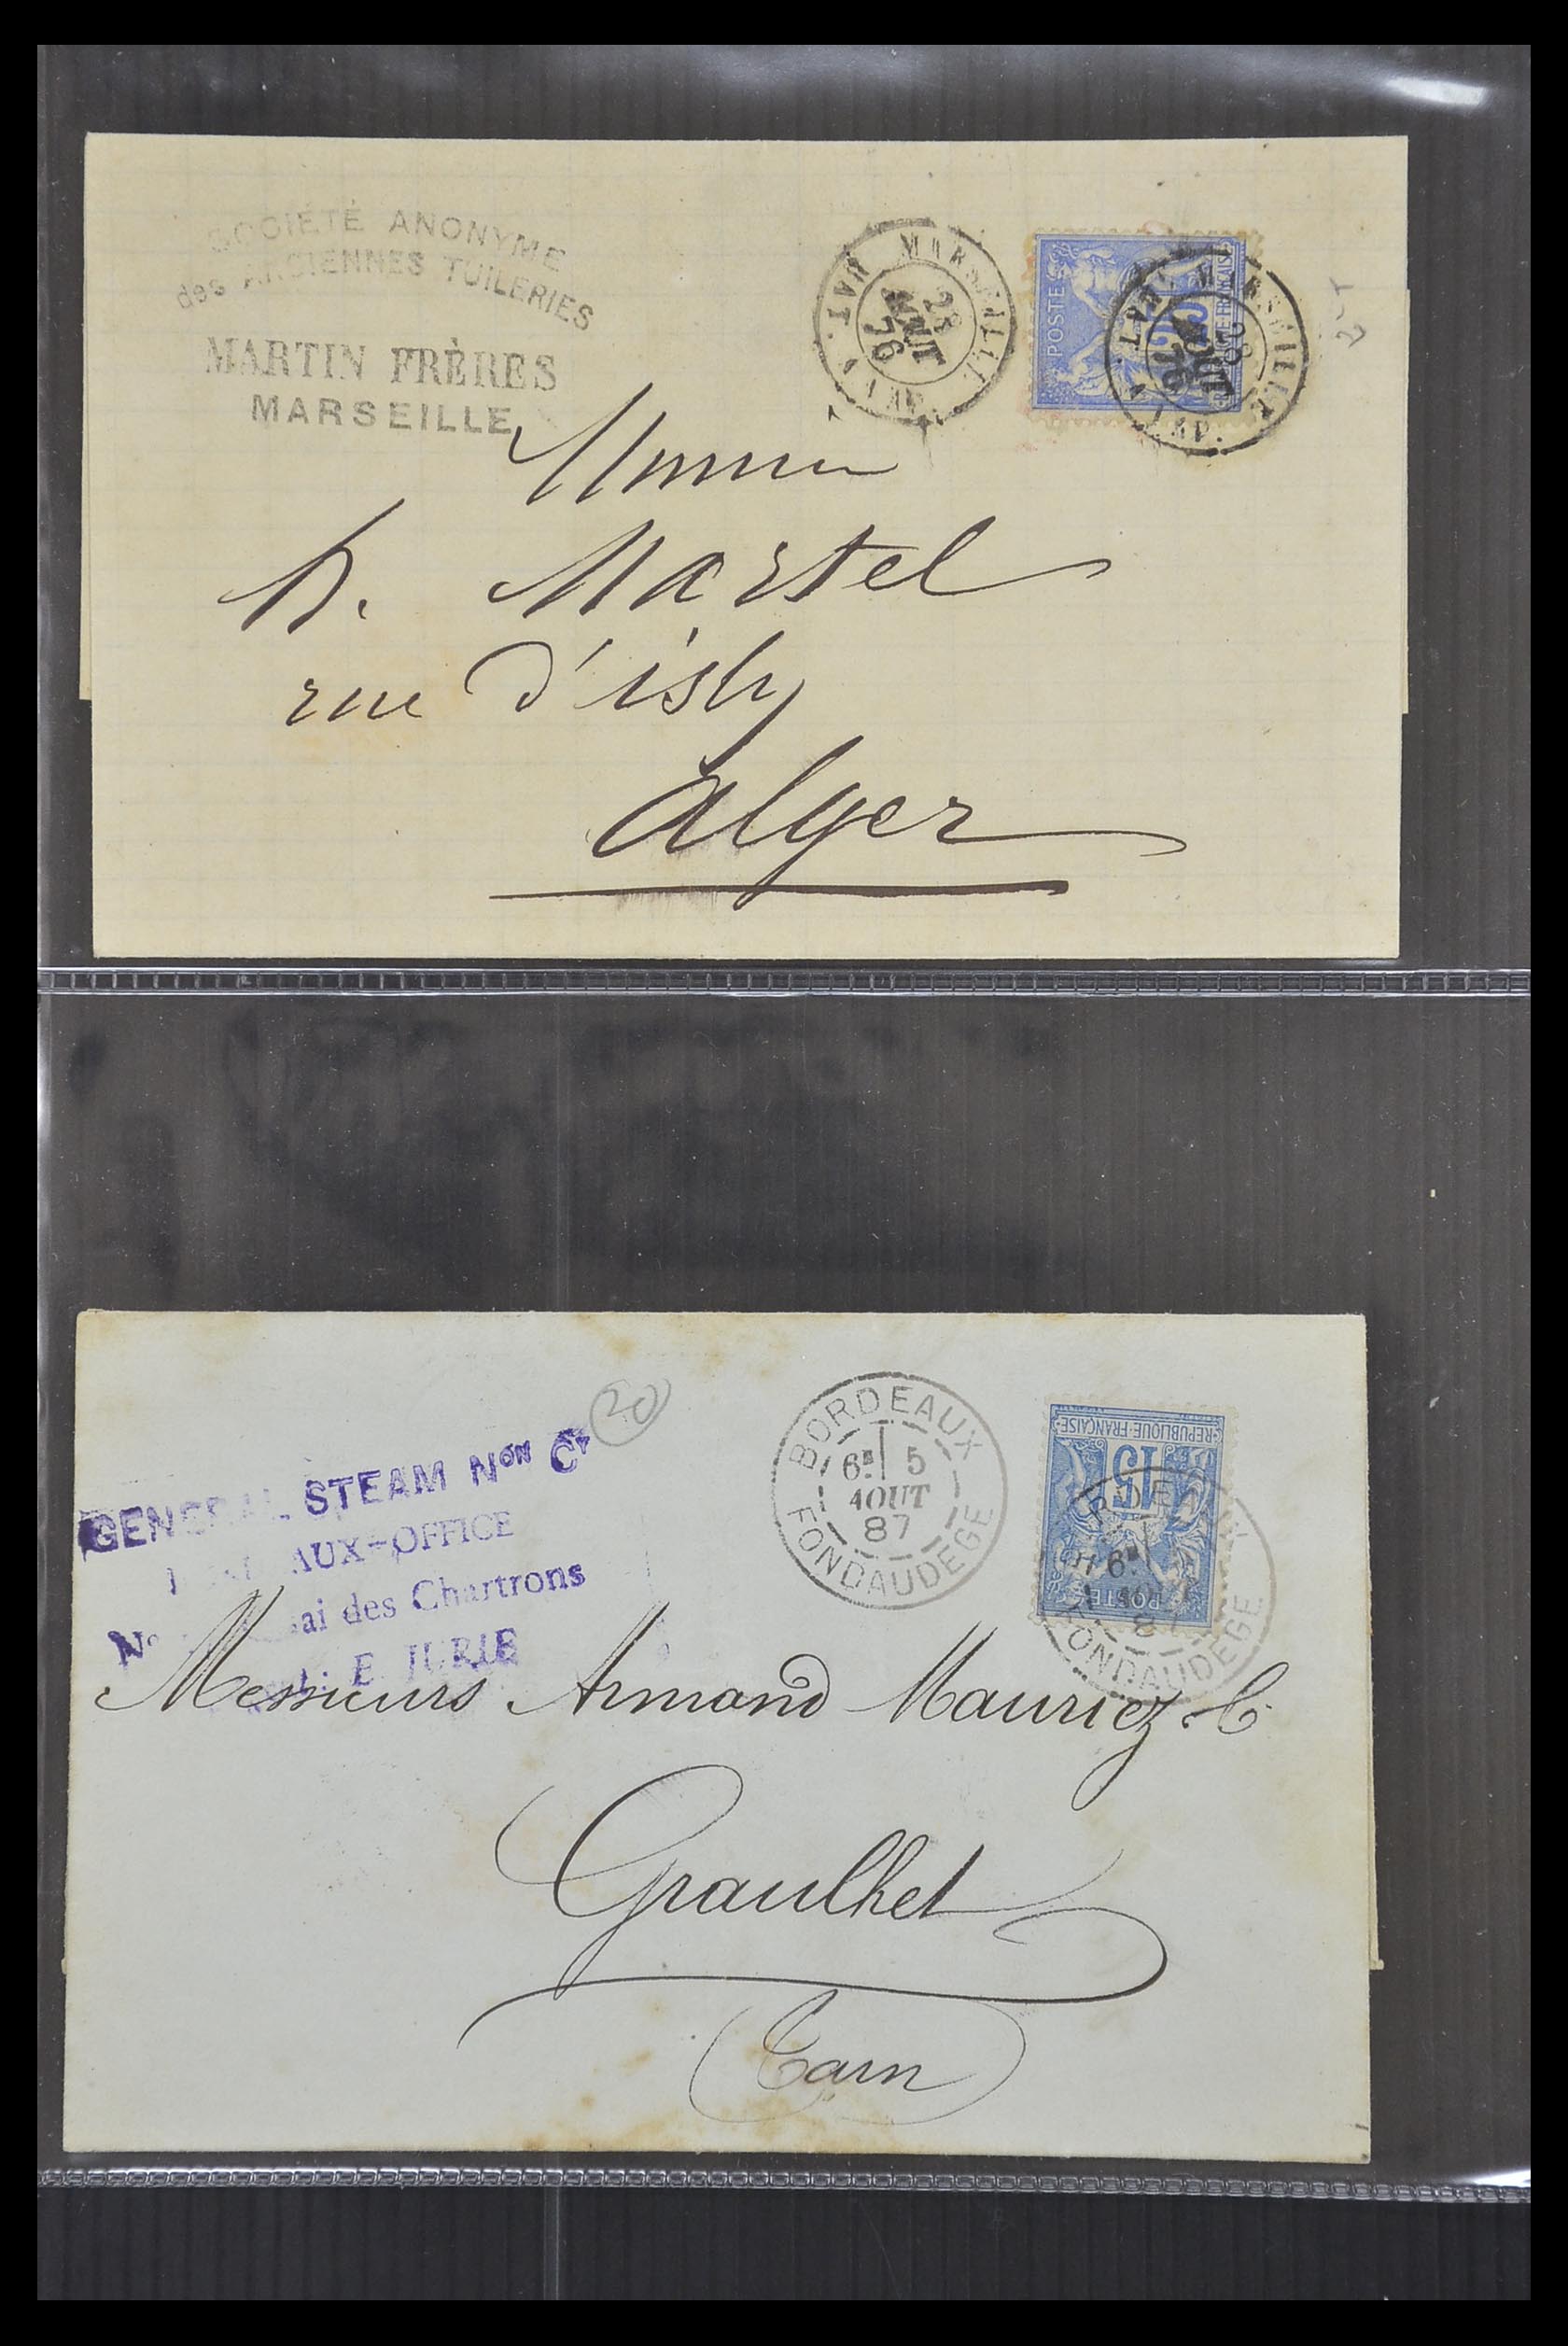 SOCIÉTÉ ANONYME
des ANCIENNES TUILERIES
MARTIN FRÈRES
MARSEILLE
MARSEILLE
28
AOUT
76
POSTES
25
MARSEILLE
AOUT
76
Monsieur
Martel
rue d'isly
Alger
20
GENERAL STEAM Nᵒᴺ Cʸ
AUX-OFFICE
Nº ai des Chartrons
E. JURIE
BORDEAUX
6ᴱ 5
AOUT
87
FONDAUDEGE
REPUBLIQUE FRANÇAISE
15
POSTES
FONDAUDEGE
Messieurs Armand Mauriez & C.
Graulhet
(Tarn)